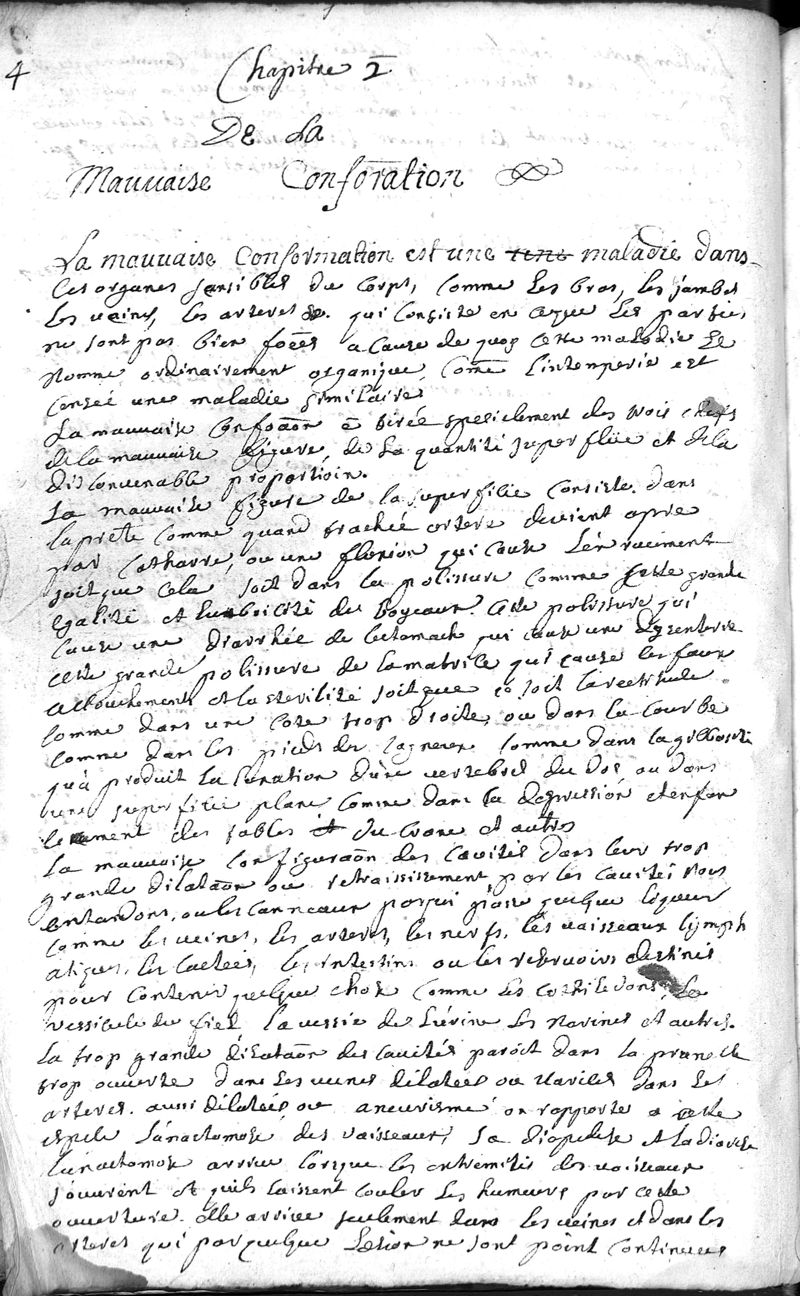 4
Chapitre 2
De La
Mauvaise Conforātion
La mauvaise Conformation est une maladie dans
Les organes sensibles du corps, comme Les bras, les jambes
les veines, les arteres &. qui Consiste en ceque Les parties
ne sont pas bien a Cause de quoy cette maladie se
Nomme ordinairement organique, Come L'intemperie est
Censeé une maladie similaire
La mauvaise est tireé specielement des trois chefs
de la mauvaise figure, de La quantité superflüe et de la
disConvenable proportioin.
La mauvaise figure de la superfitie Consiste dans
lapreté Comme quand trachée artere devient apre
par Catharre, ou une fluxion qui cause
soit que Cela soit dans la polissure comme cette grande
egalité et lubricité des boyeaux. Cette polissure qui
Cause une diarrhée de lestomach qui cause une
cette grande polissure de la matrice qui cause les faux
accouchements et la sterilité soit que ce soit la rectitude
Comme dans une Cote trop droite, ou dans la Courbe
Comme dans les pieds des cagneux Comme dans la gibbosité
qu'a produit La luxation d'une vertebres du dos, ou dans
une superfitie plane Comme dans la depression et enfon
cement des tables du Crane et autres
La mauvaise Configuraōn des Cavités dans leur trop
grande dilataōn ou retraissisement par les cavités Nous
entandons, ou les Canneaux par qui passe quelque liqueur
Comme les veines, les arteres, les nerfs, les vaisseaux lymph
atiques, les lacteés, les intestins ou les reservoirs destinés
pour Contenir quelque chose Comme Les Cottiledons, La
vessicule du fiel La vessie de L'urine Les Narines et autres.
La trop grande dilataōn des Cavités paroit dans la prunelle
trop ouverte dans Les veines dilateés ou Varices dans Les
arteres aussi dilateés, ou aneurisme on rapporte a cette
espece L'anactomose des vaisseaux, La et La
L'anactomose arrive lorsque les extremités des vaisseaux
souvrent et quils laissent Couler Les humeurs par cette
ouverture. elle arrive seulement dans les veines et dans les
arteres qui par quelque Lesion ne sont point Continues